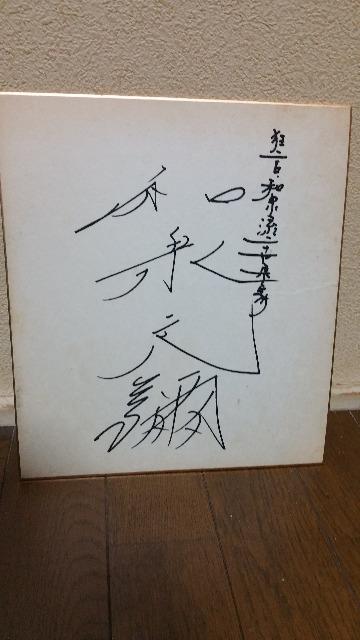 狂言和泉流二十世宗家
和泉元彌